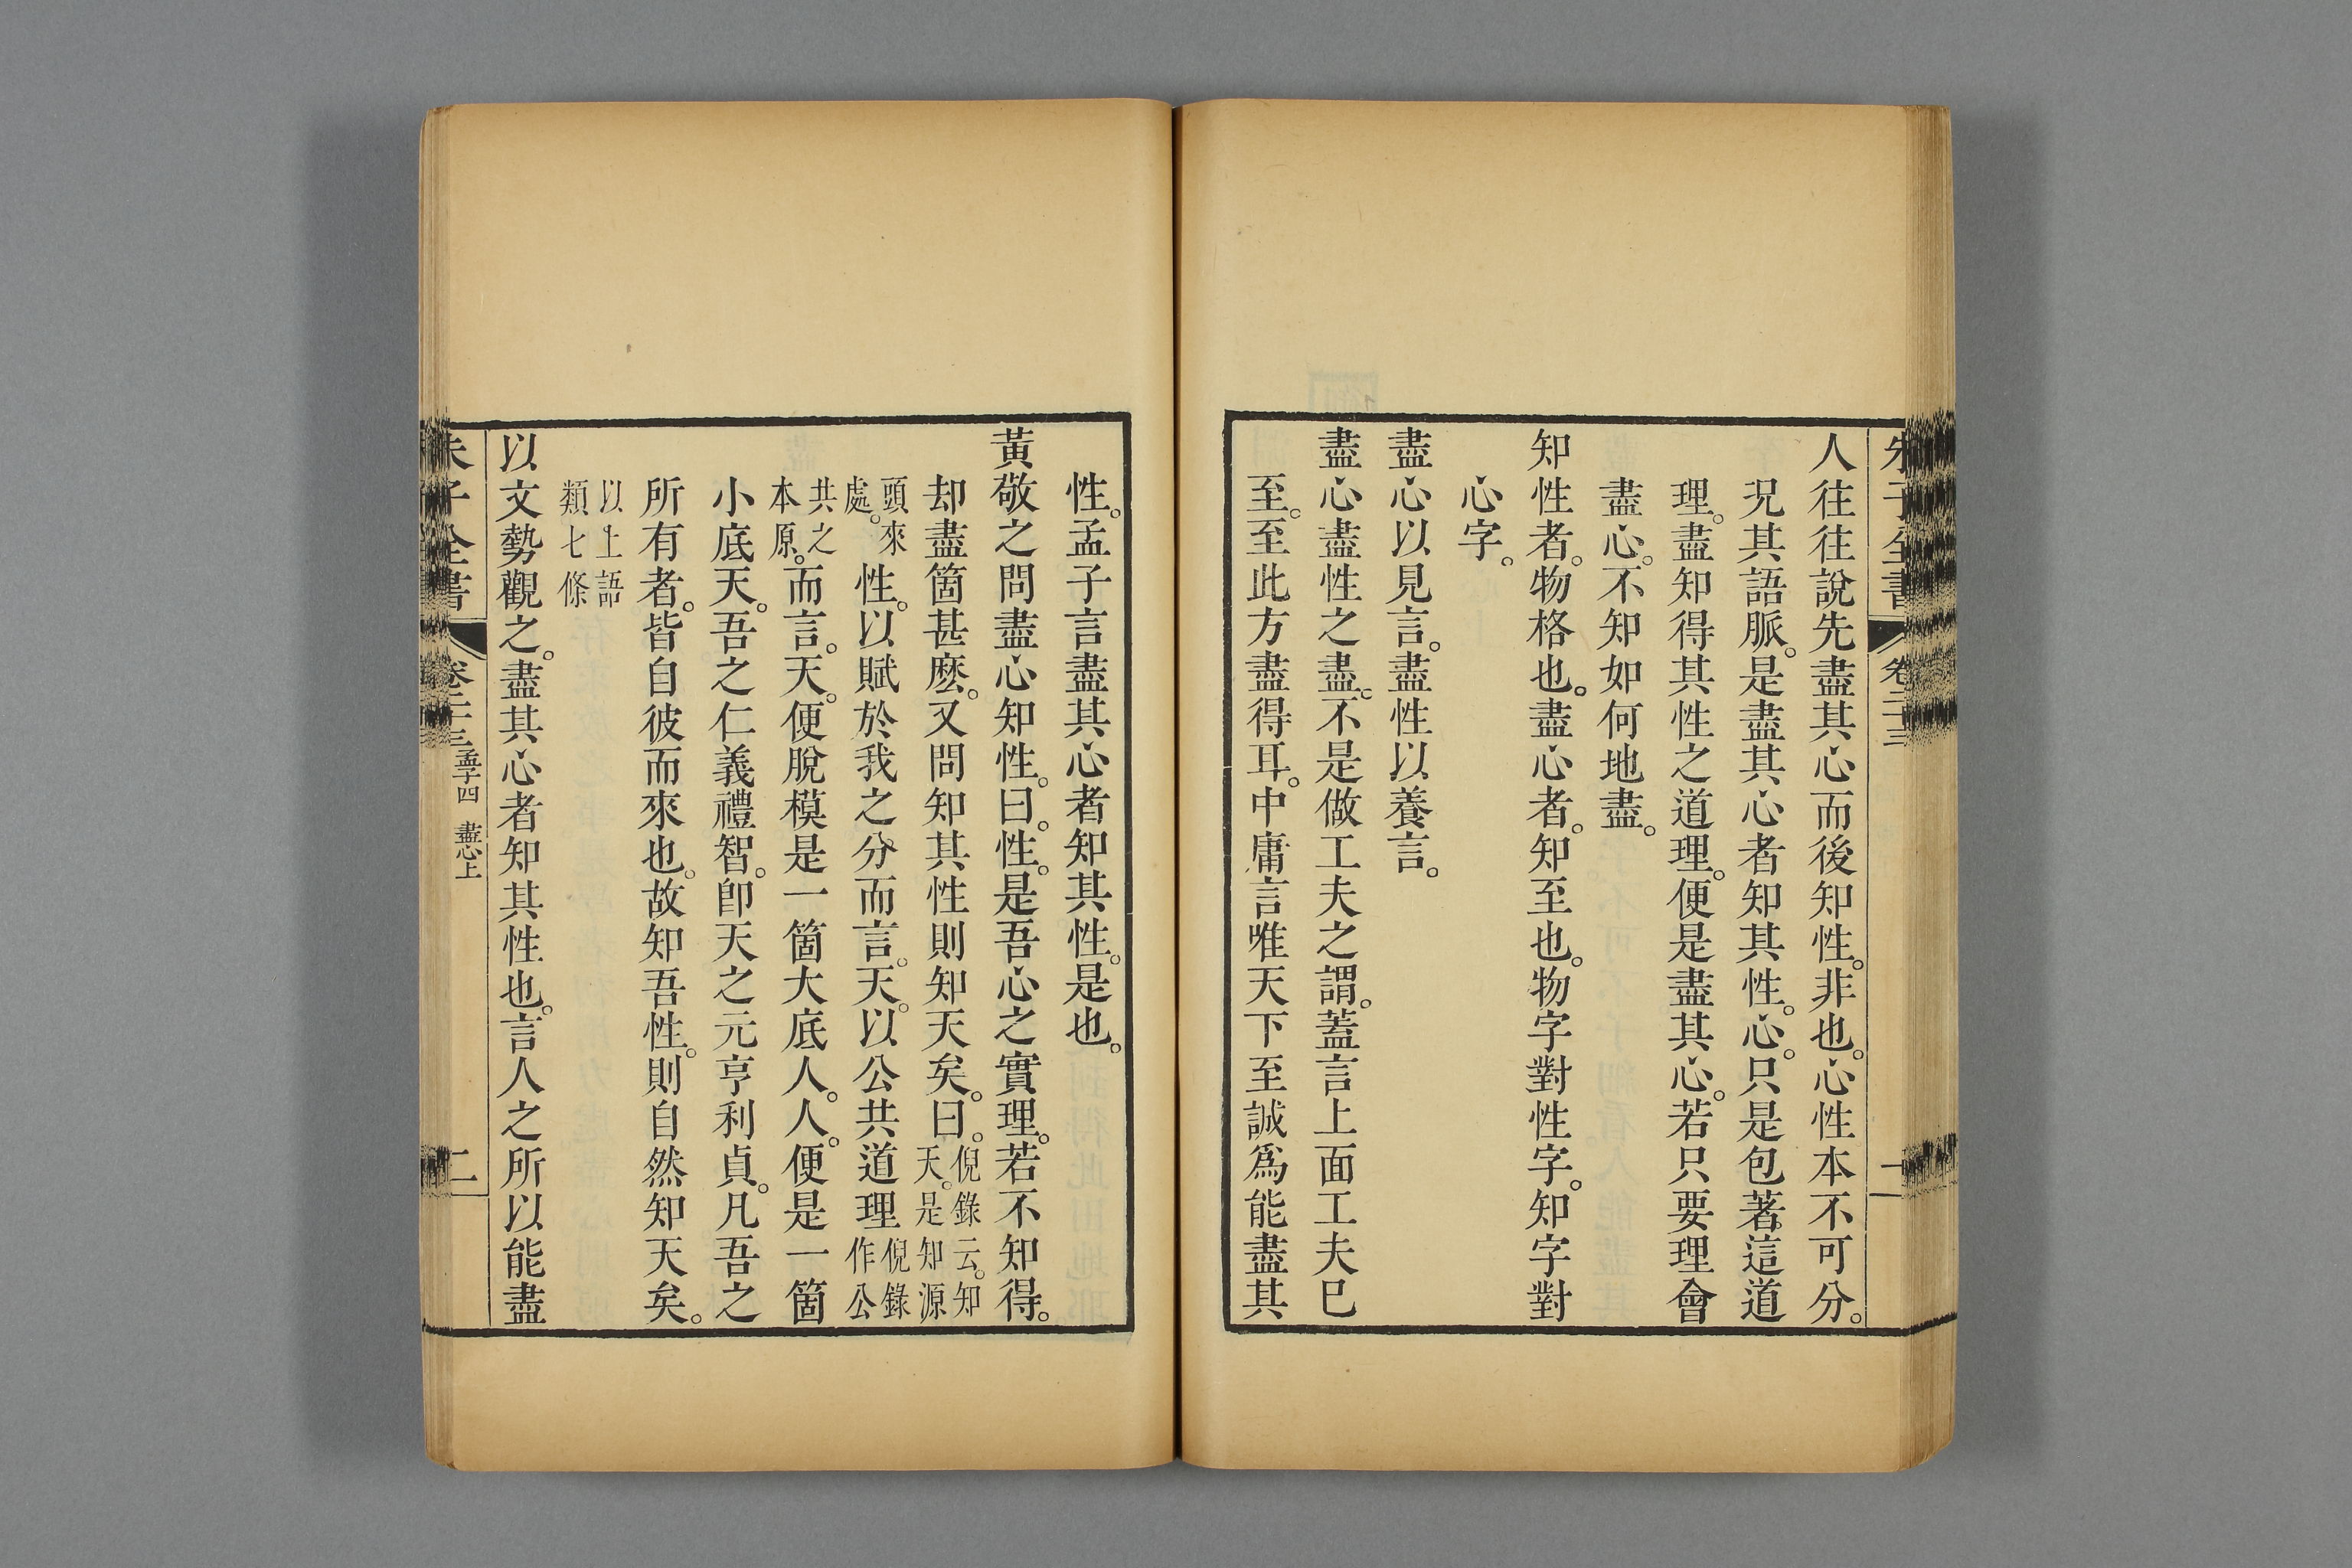 朱子全書 卷二十三 一
人往往說先盡其心而後知性。非也。心性本不可分。
況其語脈。是盡其心者知其性。心。只是包著這道
理。盡知得其性之道理。便是盡其心。若只要理會
盡心。不知如何地盡。
知性者。物格也。盡心者。知至也。物字對性字。知字對
心字。
盡心以見言。盡性以養言。
盡心盡性之盡。不是做工夫之謂。蓋言上面工夫已
至。至此方盡得耳。中庸言唯天下至誠爲能盡其
性。孟子言盡其心者知其性。是也。
黃敬之問盡心知性。曰。性。是吾心之實理。若不知得。
却盡箇甚麽。又問知其性則知天矣。曰。倪錄云。知天。是知源
頭來處。性。以賦於我之分而言。天。以公共道理倪錄作公
共之本原。而言。天。便脫模是一箇大底人。人。便是一箇
小底天。吾之仁義禮智。卽天之元亨利貞。凡吾之
所有者。皆自彼而來也。故知吾性。則自然知天矣。
以上語類七條
以文勢觀之。盡其心者知其性也。言人之所以能盡
朱子全書 卷二十三 孟子四 盡心上 二